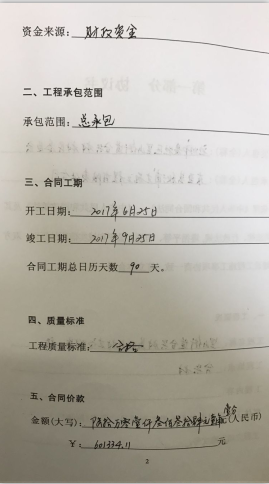 资金来源：财政资金
二、工程承包范围
承包范围：总承包
三、合同工期
开工日期：2017年6月25日
竣工日期：2017年9月25日
合同工期总日历天数 90 天。
四、质量标准
工程质量标准：合格
五、合同价款
金额(大写)：陆拾万零壹仟叁佰叁拾肆元壹角壹分(人民币)
¥：601334.11 元
2